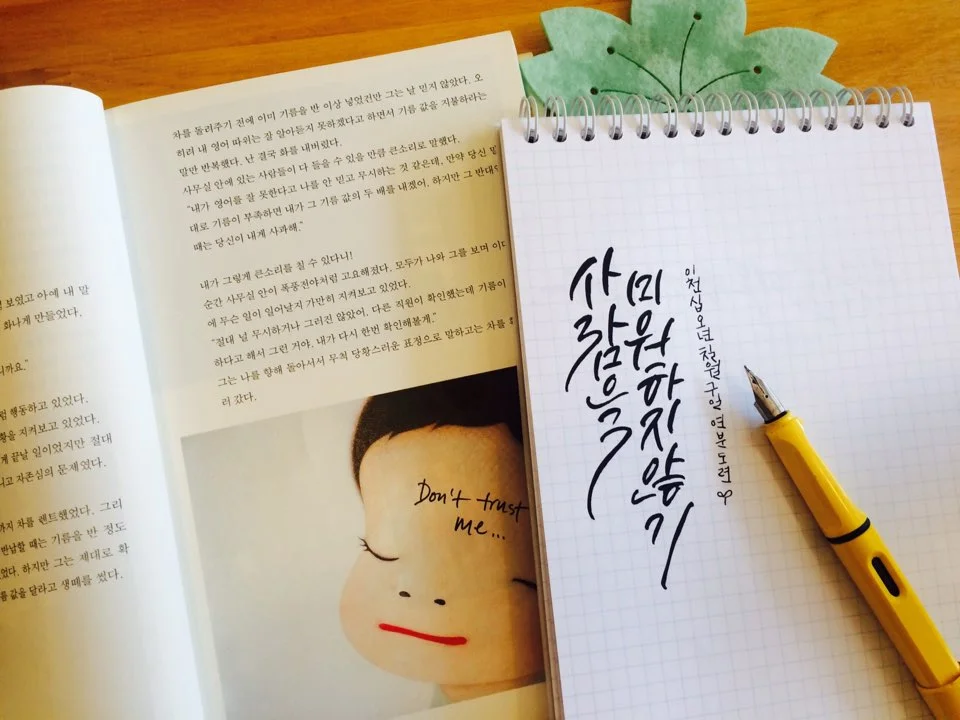 보였고 아예 내 말
화나게 만들었다.
니까요.”
럼 행동하고 있었다.
황을 지켜보고 있었다.
게 끝날 일이었지만 절대
니고 자존심의 문제였다.
까지 차를 렌트했었다. 그리
반납할 때는 기름을 반 정도
었다. 하지만 그는 제대로 확
름값을 달라고 생떼를 썼다.
차를 돌려주기 전에 이미 기름을 반 이상 넣었건만 그는 날 믿지 않았다. 오
히려 내 영어 따위는 잘 알아듣지 못하겠다고 하면서 기름 값을 지불하라는
말만 반복했다. 난 결국 화를 내버렸다.
사무실 안에 있는 사람들이 다 들을 수 있을 만큼 큰소리로 말했다.
“내가 영어를 잘 못한다고 나를 안 믿고 무시하는 것 같은데, 만약 당신 말
대로 기름이 부족하면 내가 그 기름 값의 두 배를 내겠어. 하지만 그 반대의
때는 당신이 내게 사과해.”
내가 그렇게 큰소리를 칠 수 있다니!
순간 사무실 안이 폭풍전야처럼 고요해졌다. 모두가 나와 그를 보며 이
에 무슨 일이 일어날지 가만히 지켜보고 있었다.
“절대 날 무시하거나 그러진 않았어. 다른 직원이 확인했는데 기름이
하다고 해서 그런 거야. 내가 다시 한번 확인해볼게.”
그는 나를 향해 돌아서서 무척 당황스러운 표정으로 말하고는 차를
러 갔다.
Don't trust
me...
사람을
미워하지 않기
이천십오년 칠월 구일 연분도련